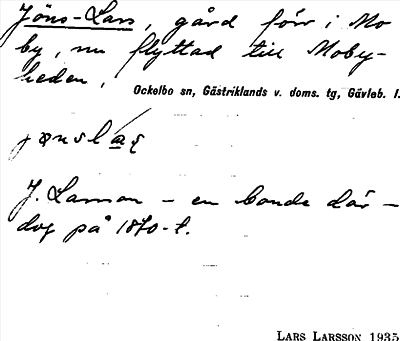 Jöns-Lars, gård förr i Mo
by, nu flyttad till Moby-
heden.
Ockelbo sn, Gästriklands v. doms. tg, Gävleb. l.
J. Larsson – en bonde där –
dog på 1870-t.
LARS LARSSON 1935